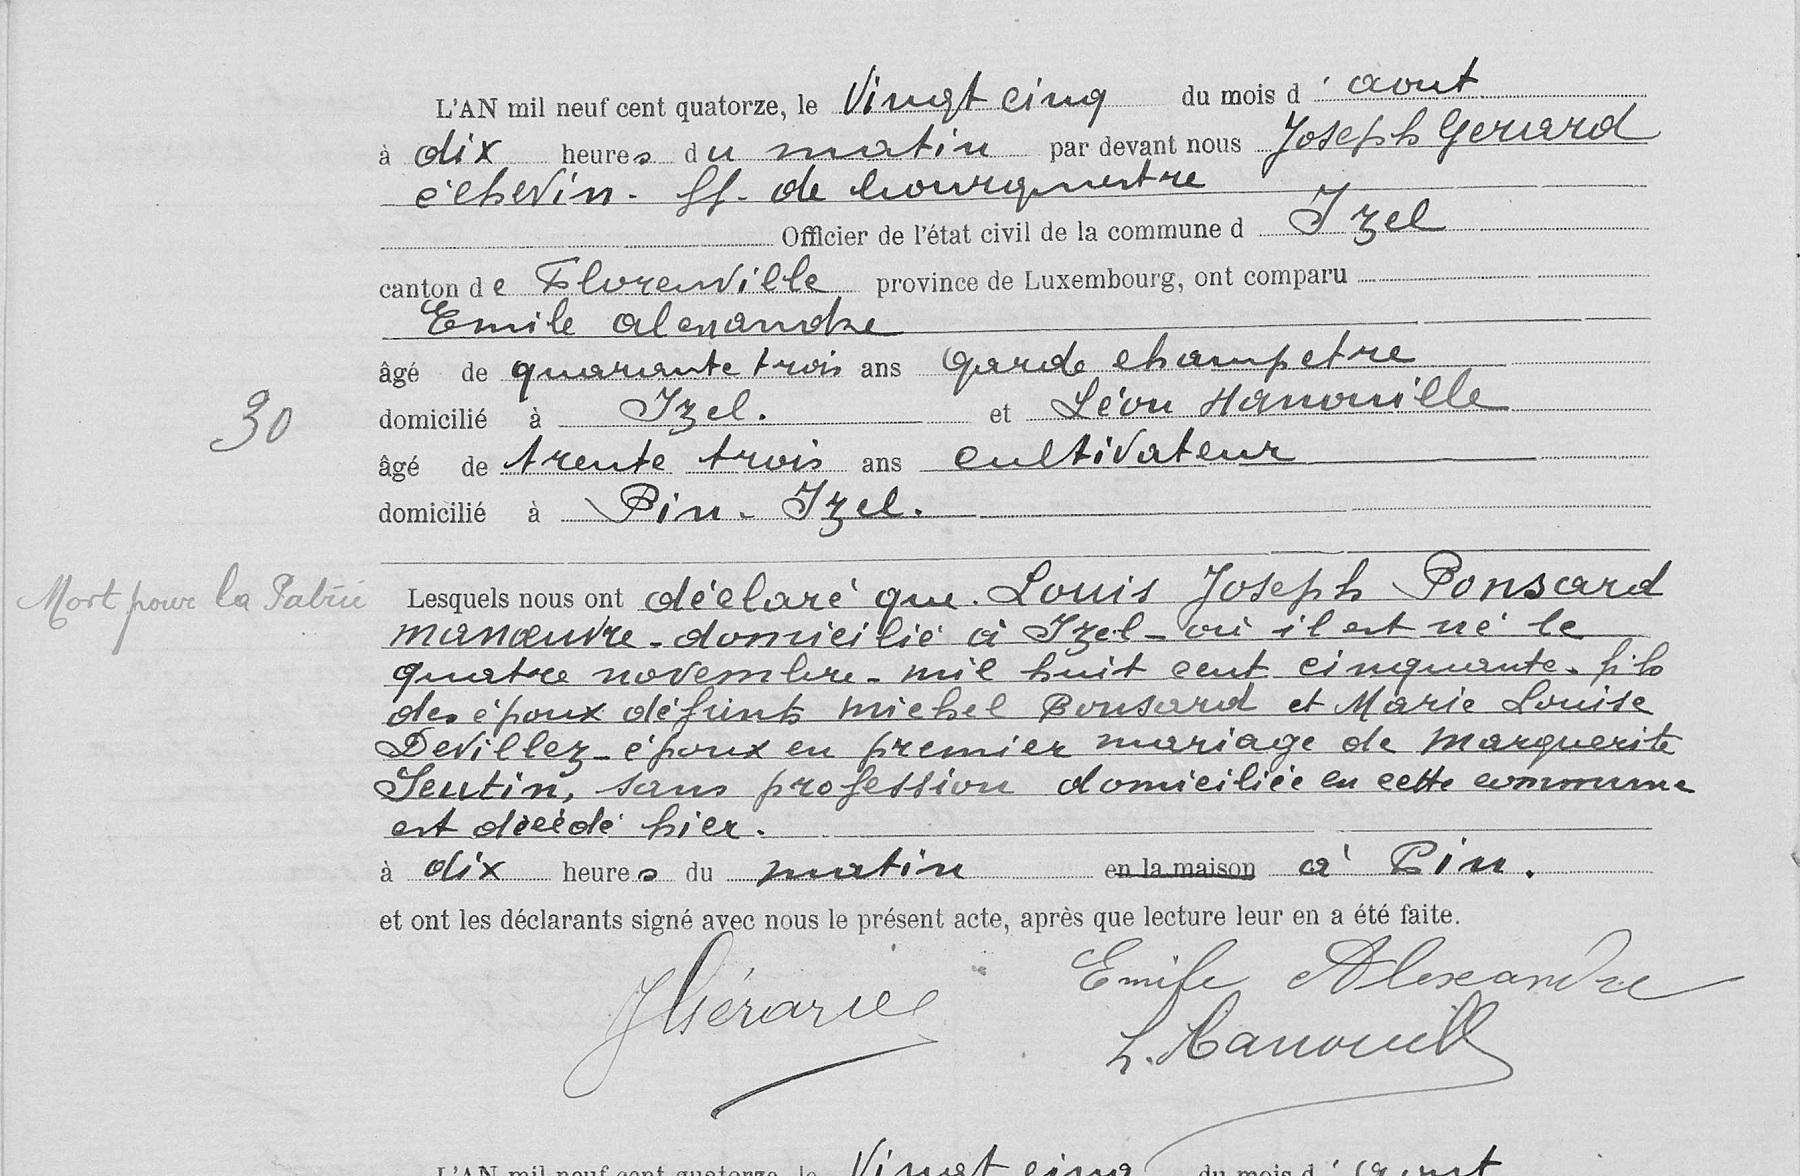 L'AN mil neuf cent quatorze, le Vingt cinq du mois d' aout
à dix heures du matin par devant nous Joseph Gerard
échevin - ff. de bourgmestre
Officier de l'état civil de la commune d Izel
canton de Florenville province de Luxembourg, ont comparu
Emile alexandre
âgé de quarante trois ans garde champetre
30
domicilié à Izel. et Léon Hanouille
âgé de trente trois ans cultivateur
domicilié à Pin - Izel.
Mort pour la Patrie
Lesquels nous ont déclaré que Louis Joseph Ponsard
manœuvre - domicilié à Izel - où il est né le
quatre novembre - mil huit cent cinquante - fils
des époux défunts Michel Ponsard et Marie Louise
Devillez - époux en premier mariage de Marguerite
Seutin, sans profession domiciliée en cette commune
est décédé hier.
à dix heures du matin en la maison à Pin.
et ont les déclarants signé avec nous le présent acte, après que lecture leur en a été faite.
Emile Alexandre
L. Hanouill
L'AN mil neuf cent quatorze, le Vingt cinq du mois d' aout